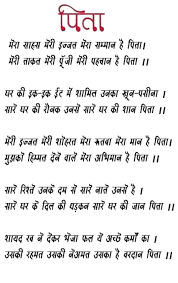 पिता
मेरा साहस मेरी इज्जत मेरा सम्मान है पिता।
मेरी ताकत मेरी पूँजी मेरी पहचान है पिता ।।
घर की इक-इक ईंट में शामिल उनका खून-पसीना ।
सारे घर की रौनक उनसे सारे घर की शान पिता ।।
मेरी इज्जत मेरी शोहरत मेरा रूतबा मेरा मान है पिता।
मुझको हिम्मत देने वाले मेरा अभिमान है पिता ।।
सारे रिश्ते उनके दम से सारे नाते उनसे है ।
सारे घर के दिल की धड़कन सारे घर की जान पिता ।।
शायद रब ने देकर भेजा फल ये अच्छे कर्मों का ।
उसकी रहमत उसकी नेअमत उसका है वरदान पिता ।।